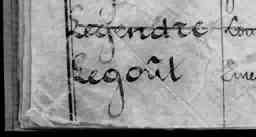 Legendre
Legoût